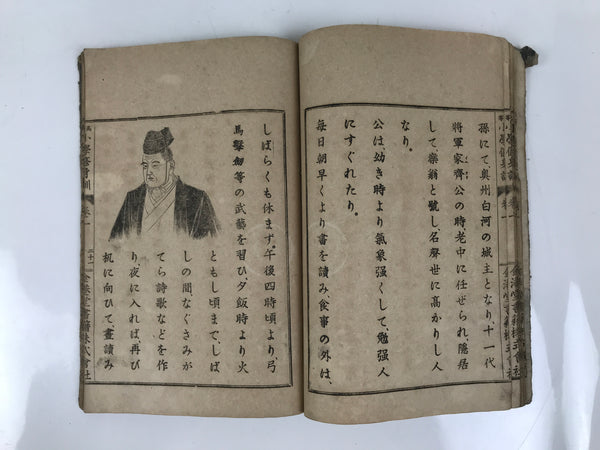 孫にて、奥州白河の城主となり、十一代
將軍家齊公の時、老中に任ぜられ、隱居
して、樂翁と號し、名聲世に高かりし人
なり。
公は、幼き時より氣象强くして、勉强人
にすぐれたり。
毎日朝早くより書を讀み、食事の外は、
しばらくも休まず。午後四時頃より弓
馬擊劒等の武藝を習ひ、夕飯時より火
ともし頃まで、しば
しの間なぐさみが
てら詩歌などを作
り、夜に入れば、再び
机に向ひて、書讀み
小學修身訓 卷一
二十一 金港堂書籍株式會社